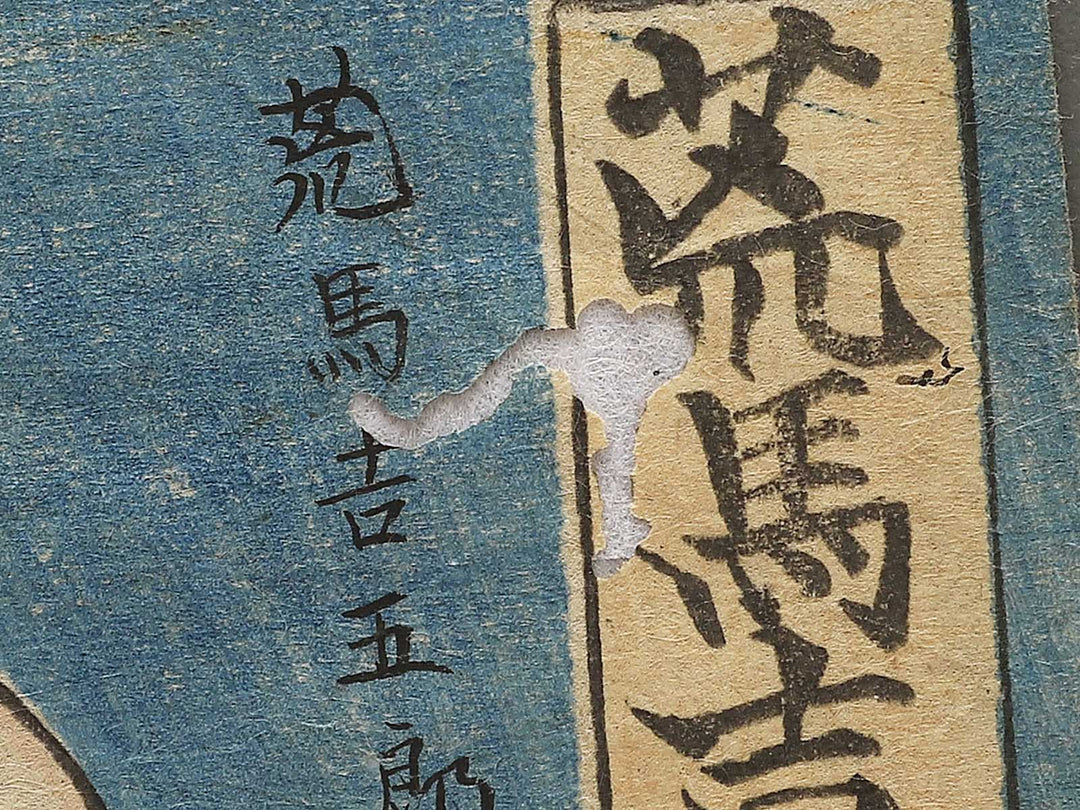 荒馬吉
荒馬吉五郎